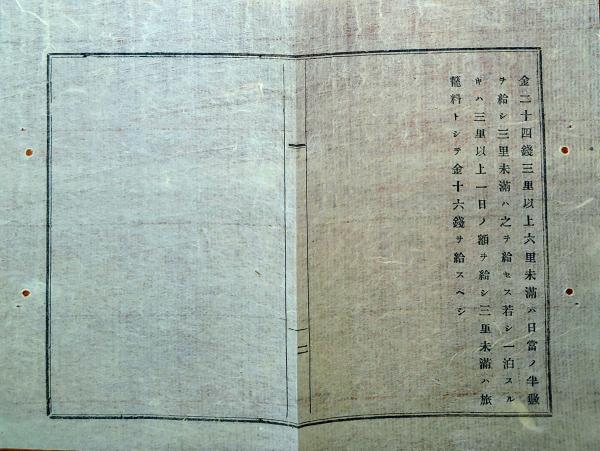 金二十四錢三里以上六里未滿ハ日當ノ半數
ヲ給シ三里未滿ハ之ヲ給セス若シ一泊スル
キハ三里以上一日ノ額ヲ給シ三里未滿ハ旅
籠料トシテ金十六錢ヲ給スベシ